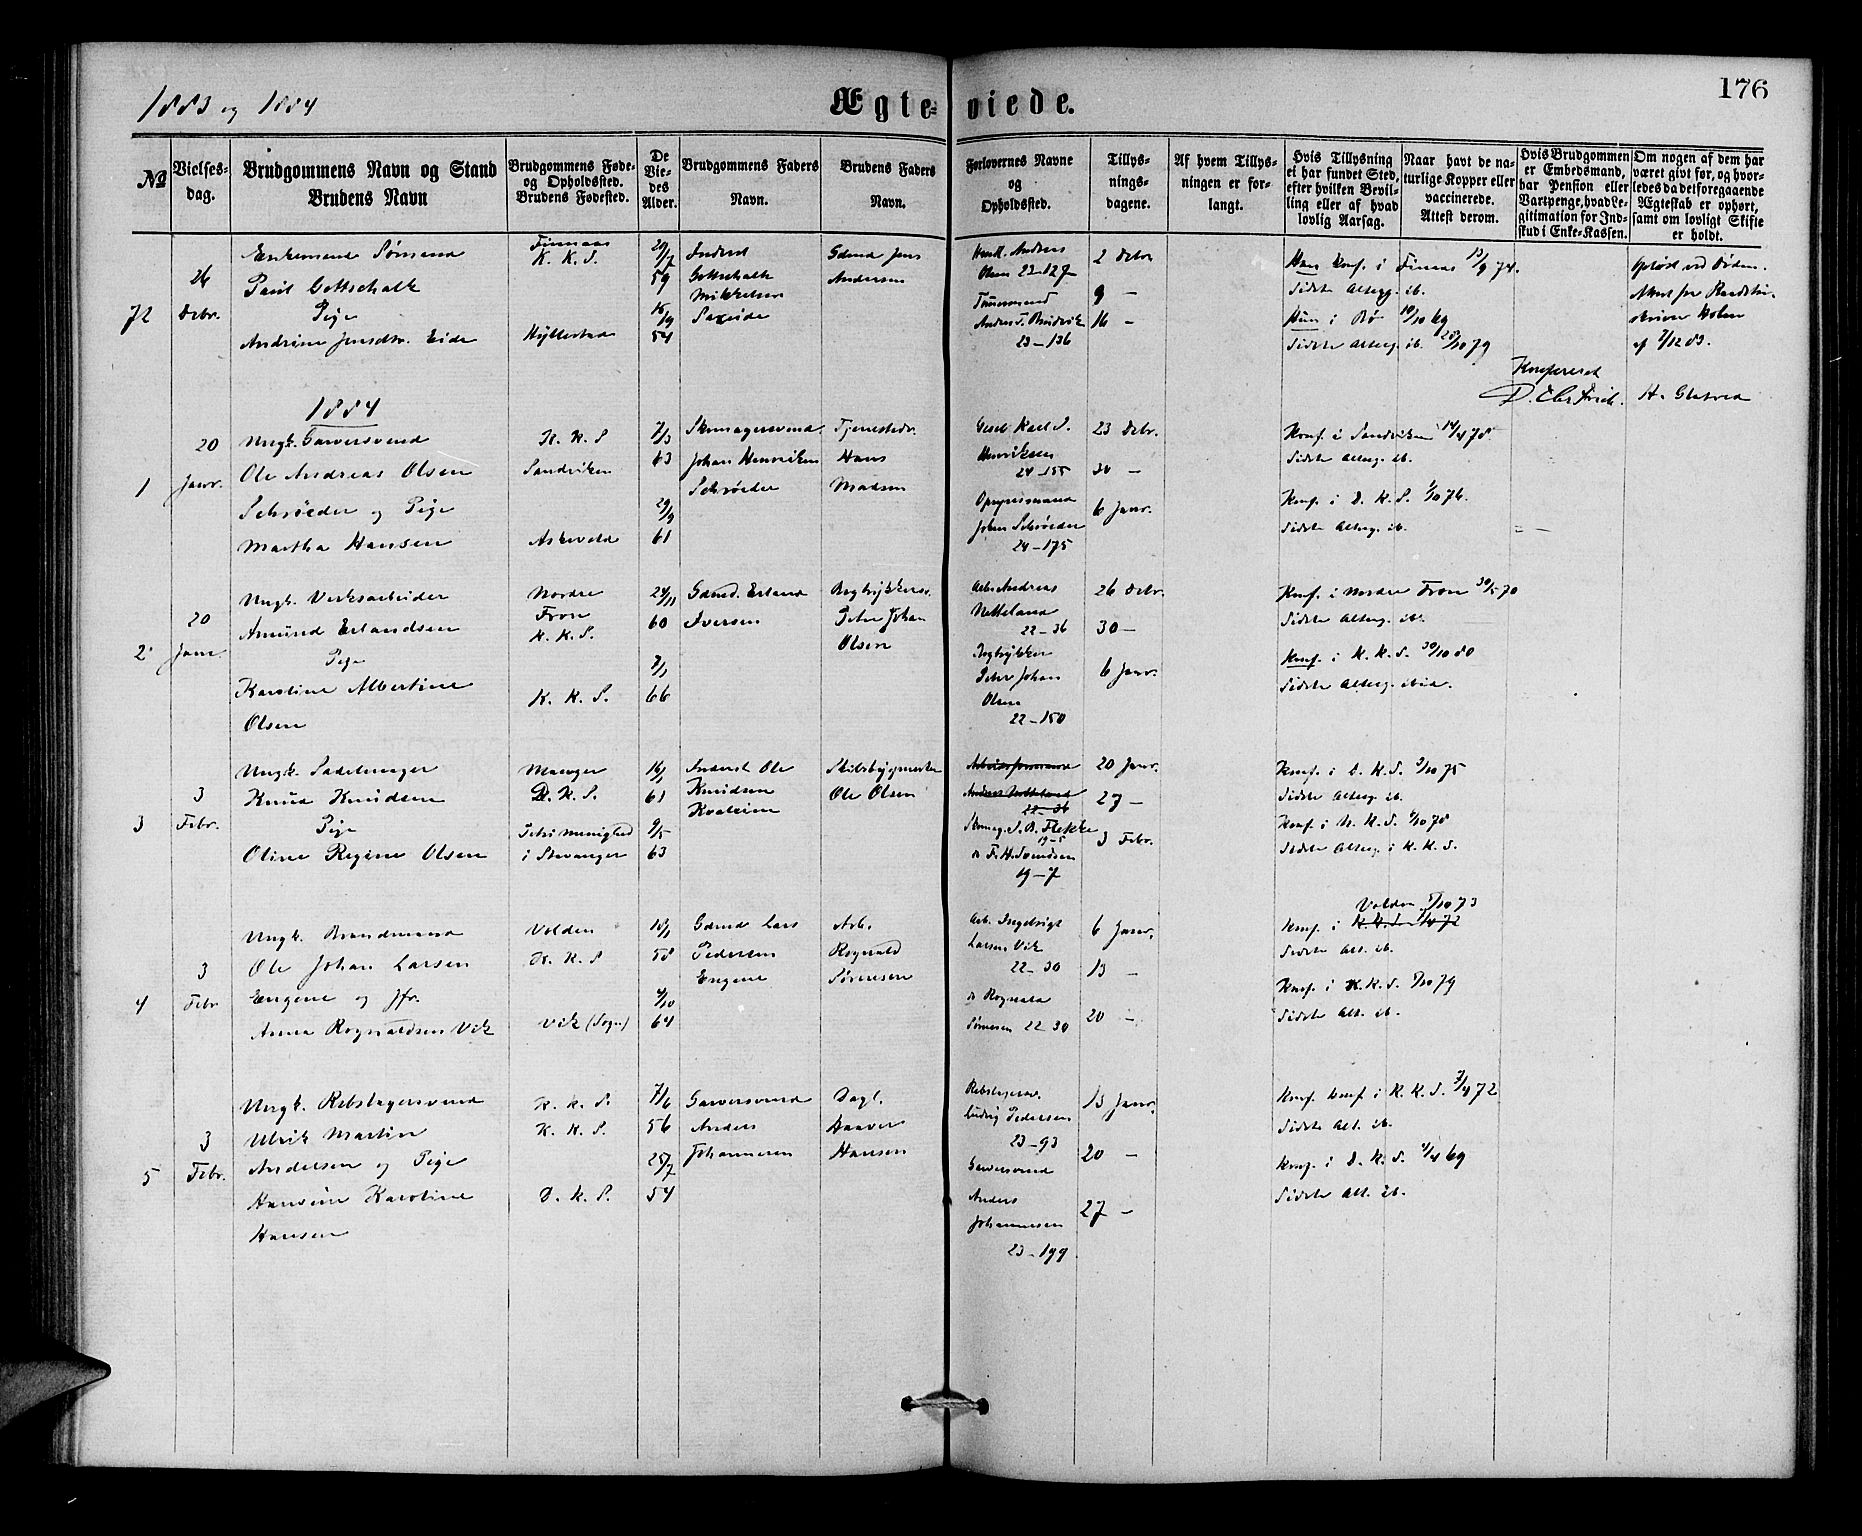 1883 og 1884
Ægteviede.
176
No
Vielses-dag.
Brudgommens Navn og Stand
Brudens Navn
Brudgommens Føde- og Opholdssted.
Brudens Fødested.
De Viedes Alder.
Brudgommens Faders Navn.
Brudens Faders Navn.
Forlovernes Navne og Opholdssted.
Tillysningsdagene.
Af hvem Tillysningen er forlangt.
Hvis Tillysning ei har fundet Sted, efter hvilken Bevilling eller af hvad lovlig Aarsag.
Naar havt de naturlige Kopper eller vaccinerede. Attest derom.
Hvis Brudgommen er Embedsmand, har Pension eller Vartpenge, hvad Legitimation for Indskud i Enke-Kassen.
Om nogen af dem har været givt før, og hvorledes da det foregaaende Ægteskab er ophørt, samt om lovligt Skifte er holdt.
72
26 Debr.
Enkemand Sømand
Paul Gottschalk
Pige
Andrine Jensdtr. Eide
Finnaas
K. K. S.
Hyllestad
29/7 59
16/9 54
Inderst
Gottschalk
Mikkelsen
Gdmd Jens
Andersen
Andreas
Olsen 23-127
Tømmermand
Anders T. Brudvik
23-136
2 Debr
9 —
16 —
Han Konf. i Finnas 13/9 74.
Sidste Alterg. ib.
Hun i Bø 10/10 69
Sidste Alterg. ib. 25/10 79
Opløst ved Døden.
skriver Holm
af 7/12 83.
Konfereret
1884
1
20 Janr.
Ungk. Garversvend
Ole Andreas Olsen
Schrøeder og Pige
Martha Hansen
K. K. S
Sandviken
Askevold
7/3 63
29/9 61
Skomagersvend.
Johan Henriksen
Schrøeder
Tjenestedr.
Hans
Madsen
Gesel Karl S.
Henriksen
24-155
Opsynsmand
Johan Schrøeder
24-175
23 Debr.
30 —
6 Janr.
Konf. i Sandviken 14/4 78.
Sidste Alterg. ib.
Konf. i D. K. S. 1/10 76.
Sidste Alterg. ib.
2
20 Janr.
Ungk. Verksarbeider
Amund Erlandsen
Pige
Karoline Albertine
Olsen
Nordre
Fron
K. K. S.
K. K. S.
24/11 60
7/1 66
Gdmd. Erland
Iversen
Bogtrykkersv.
Peter Johan
Olsen
Arb. Andreas
Netteland
22-36
Bogtrykker
Peter Johan
Olsen
22-150
26 Debr.
30 —
6 Janr.
Konf. i Nordre Fron 30/5 70
Sidste Alterg. ib.
Konf. i K. K. S. 30/10 80
Sidste Alterg. ibid.
3
3 Febr.
Ungk. Sadelmager
Knud Knudsen
Pige
Oline Regine Olsen
Manger
D. K. S.
Petri menighed
i Stavanger
16/1 61
9/5 63
Inderst Ole
Knudsen
Kvaleim
Skibsbygmester
Ole Olsen
Arbeidsformand
Andreas Netteland
22-36
Skomag. S. B. Flekke
19-5
& F. H. Svendsen
19-7
20 Janr.
27 —
3 Febr.
Konf. i D. K. S. 3/10 75
Sidste Alterg. ib.
Konf. i N. K. S. 6/10 78
Sidste Alterg. i K. K. S.
4
3 Febr
Ungk. Brandmand
Ole Johan Larsen
Engene og Jfr.
Anna Rognaldsen Vik
Volden
K. K. S
Vik (Sogn)
10/1 58
4/10 64
Gdmd Lars
Pedersen
Engene
Arb.
Rognald
Sørensen
Arb. Ingebrigt
Larsen Vik
22-30
& Rognald
Sørensen 22-30
6 Janr.
13 —
20 —
Volden 5/10 73
Konf. i K. K. S. 72
Sidste Alt. ib.
Konf. i K. K. S. 5/10 79
Sidste Alt. ib.
5
3 Febr.
Ungk. Rebslagersvend
Ulrik Martin
Andersen og Pige
Hansine Karoline
Hansen
K. K. S.
K. K. S.
D. K. S.
7/6 56
25/7 54
Garversvend
Anders
Johannesen
Dagl.
Haaver
Hansen
Rebslagersv.
Ludvig Pedersen
23-93
Garversvend
Anders
Johannesen
23-199
13 Janr.
20 —
27 —
Konf. i K. K. S. 7/4 72
Sidste Alt. ib.
Konf. i D. K. S. 4/4 69
Sidste Alt. ib.